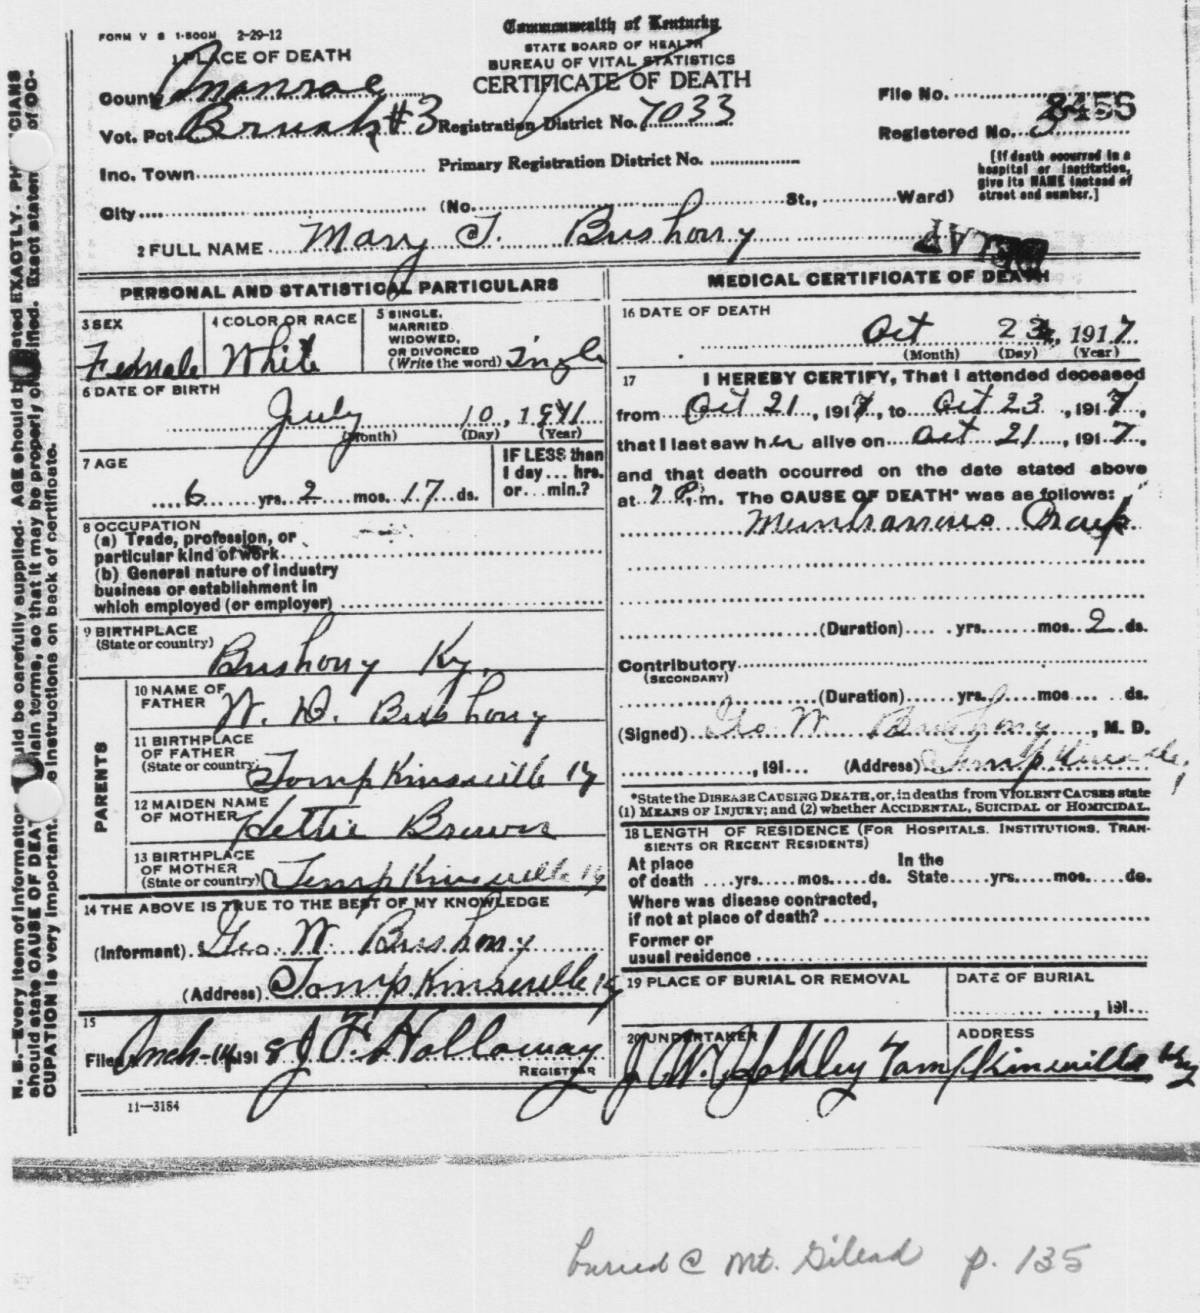 FORM V S 1-500M 2-29-12
Commonwealth of Kentucky
STATE BOARD OF HEALTH
BUREAU OF VITAL STATISTICS
CERTIFICATE OF DEATH
1 PLACE OF DEATH
County Monroe
Vot. Pct Brush #3 Registration District No. 7033
File No.
Registered No. 3
Ino. Town Primary Registration District No.
[If death occurred in a
hospital or institution,
give its NAME instead of
street and number.]
City (No. St., Ward)
2 FULL NAME Mary J. Bushong
PERSONAL AND STATISTICAL PARTICULARS
3 SEX
Female
4 COLOR OR RACE
White
5 SINGLE,
MARRIED
WIDOWED,
OR DIVORCED
(Write the word)
6 DATE OF BIRTH
July 10, 1911
(Month) (Day) (Year)
7 AGE
6 yrs. 2 mos. 17 ds.
IF LESS than
1 day ... hrs.
or ... min.?
8 OCCUPATION
(a) Trade, profession, or
particular kind of work
(b) General nature of industry
business or establishment in
which employed (or employer)
9 BIRTHPLACE
(State or country)
Bushong Ky.
PARENTS
10 NAME OF
FATHER
W. D. Bushong
11 BIRTHPLACE
OF FATHER
(State or country)
Tompkinsville Ky
12 MAIDEN NAME
OF MOTHER
Hettie Brewer
13 BIRTHPLACE
OF MOTHER
(State or country)
Tompkinsville Ky
14 THE ABOVE IS TRUE TO THE BEST OF MY KNOWLEDGE
(Informant) Geo W Bushong
(Address) Tompkinsville Ky
15
Filed Mch-14 1918 J F Holloway
REGISTRAR
11—3184
MEDICAL CERTIFICATE OF DEATH
16 DATE OF DEATH
Oct 23, 1917
(Month) (Day) (Year)
17 I HEREBY CERTIFY, That I attended deceased
from Oct 21, 1917, to Oct 23, 1917,
that I last saw her alive on Oct 21, 1917,
and that death occurred on the date stated above
at 7 P. m. The CAUSE OF DEATH* was as follows:
Membranous Croup
(Duration) yrs. mos. 2 ds.
Contributory
(SECONDARY)
(Duration) yrs. mos. ds.
(Signed) Geo W Bushong, M. D.
, 191... (Address) Tompkinsville,
*State the DISEASE CAUSING DEATH, or, in deaths from VIOLENT CAUSES state
(1) MEANS OF INJURY; and (2) whether ACCIDENTAL, SUICIDAL or HOMICIDAL.
18 LENGTH OF RESIDENCE (FOR HOSPITALS. INSTITUTIONS. TRAN-
SIENTS OR RECENT RESIDENTS)
At place In the
of death ....yrs.....mos....ds. State.....yrs.....mos....ds.
Where was disease contracted,
if not at place of death?
Former or
usual residence
19 PLACE OF BURIAL OR REMOVAL
DATE OF BURIAL
, 191...
20 UNDERTAKER
J. W. Yokley
ADDRESS
Tompkinsville Ky
buried @ Mt. Gilead p. 135